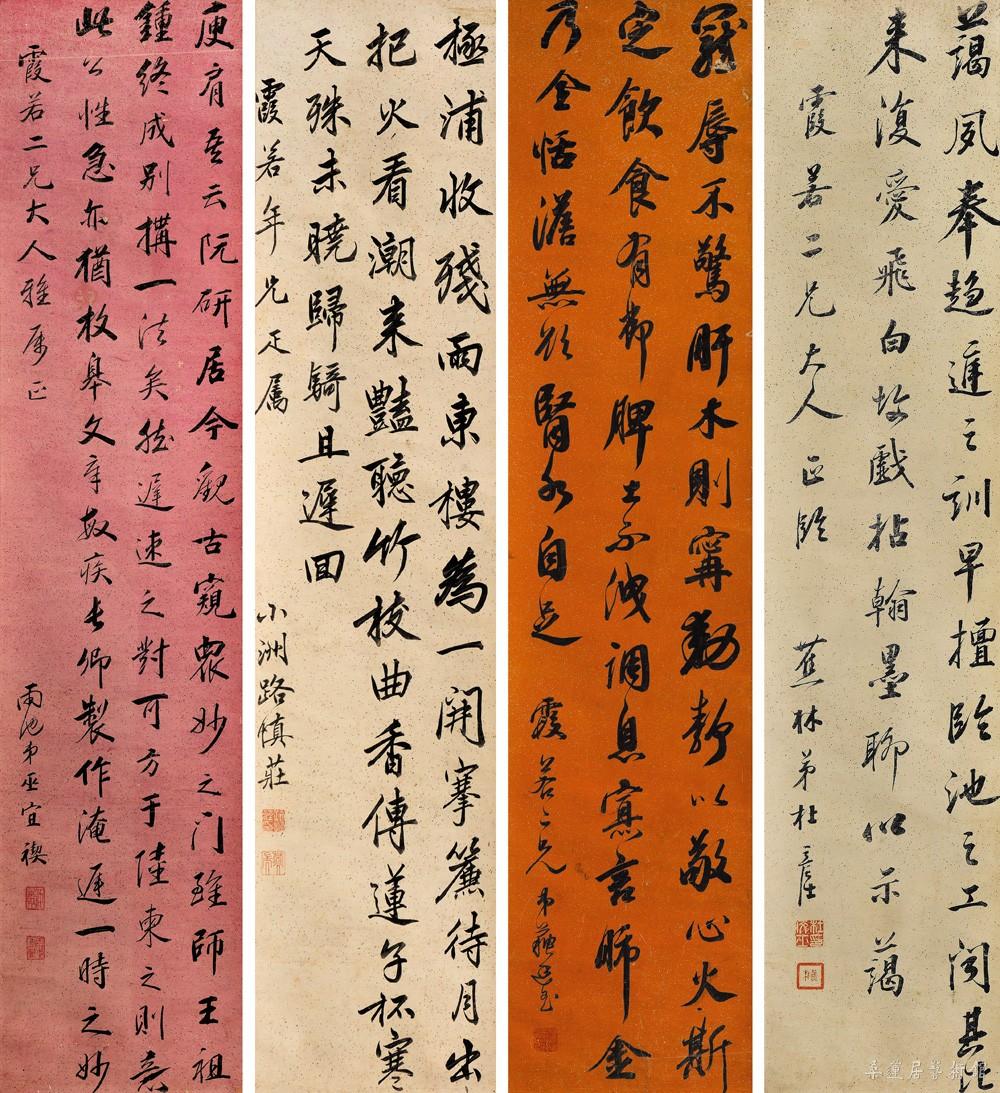 藹夙奉趨進之訓早擅臨池之工闵其比
来復愛飛白故戲拈翰墨聊似示藹
霞若二兄大人正臨 蕉林弟杜
寵辱不驚肝木則寧動静以敬心火斯
定飲食有節脾土不洩調息寡言肺金
乃全恬澹無欲腎水自足
霞若二兄 弟蘇廷玉
極浦收殘雨東樓為一開搴簾待月出
把火看潮来豔聽竹枝曲香傳蓮子杯寒
天殊未曉歸騎且遲回
霞若年兄正屬 小洲路慎莊
庾肩吾云阮研居今觀古窺眾妙之门雖師王祖
鍾終成别構一法矣然遲速之對可方于陸柬之則意
此公性急亦猶枚皋文章敏疾長卿製作淹遲一時之妙
霞若二兄大人雅属正
雨池弟巫宜禊
桑蓮居藝術館